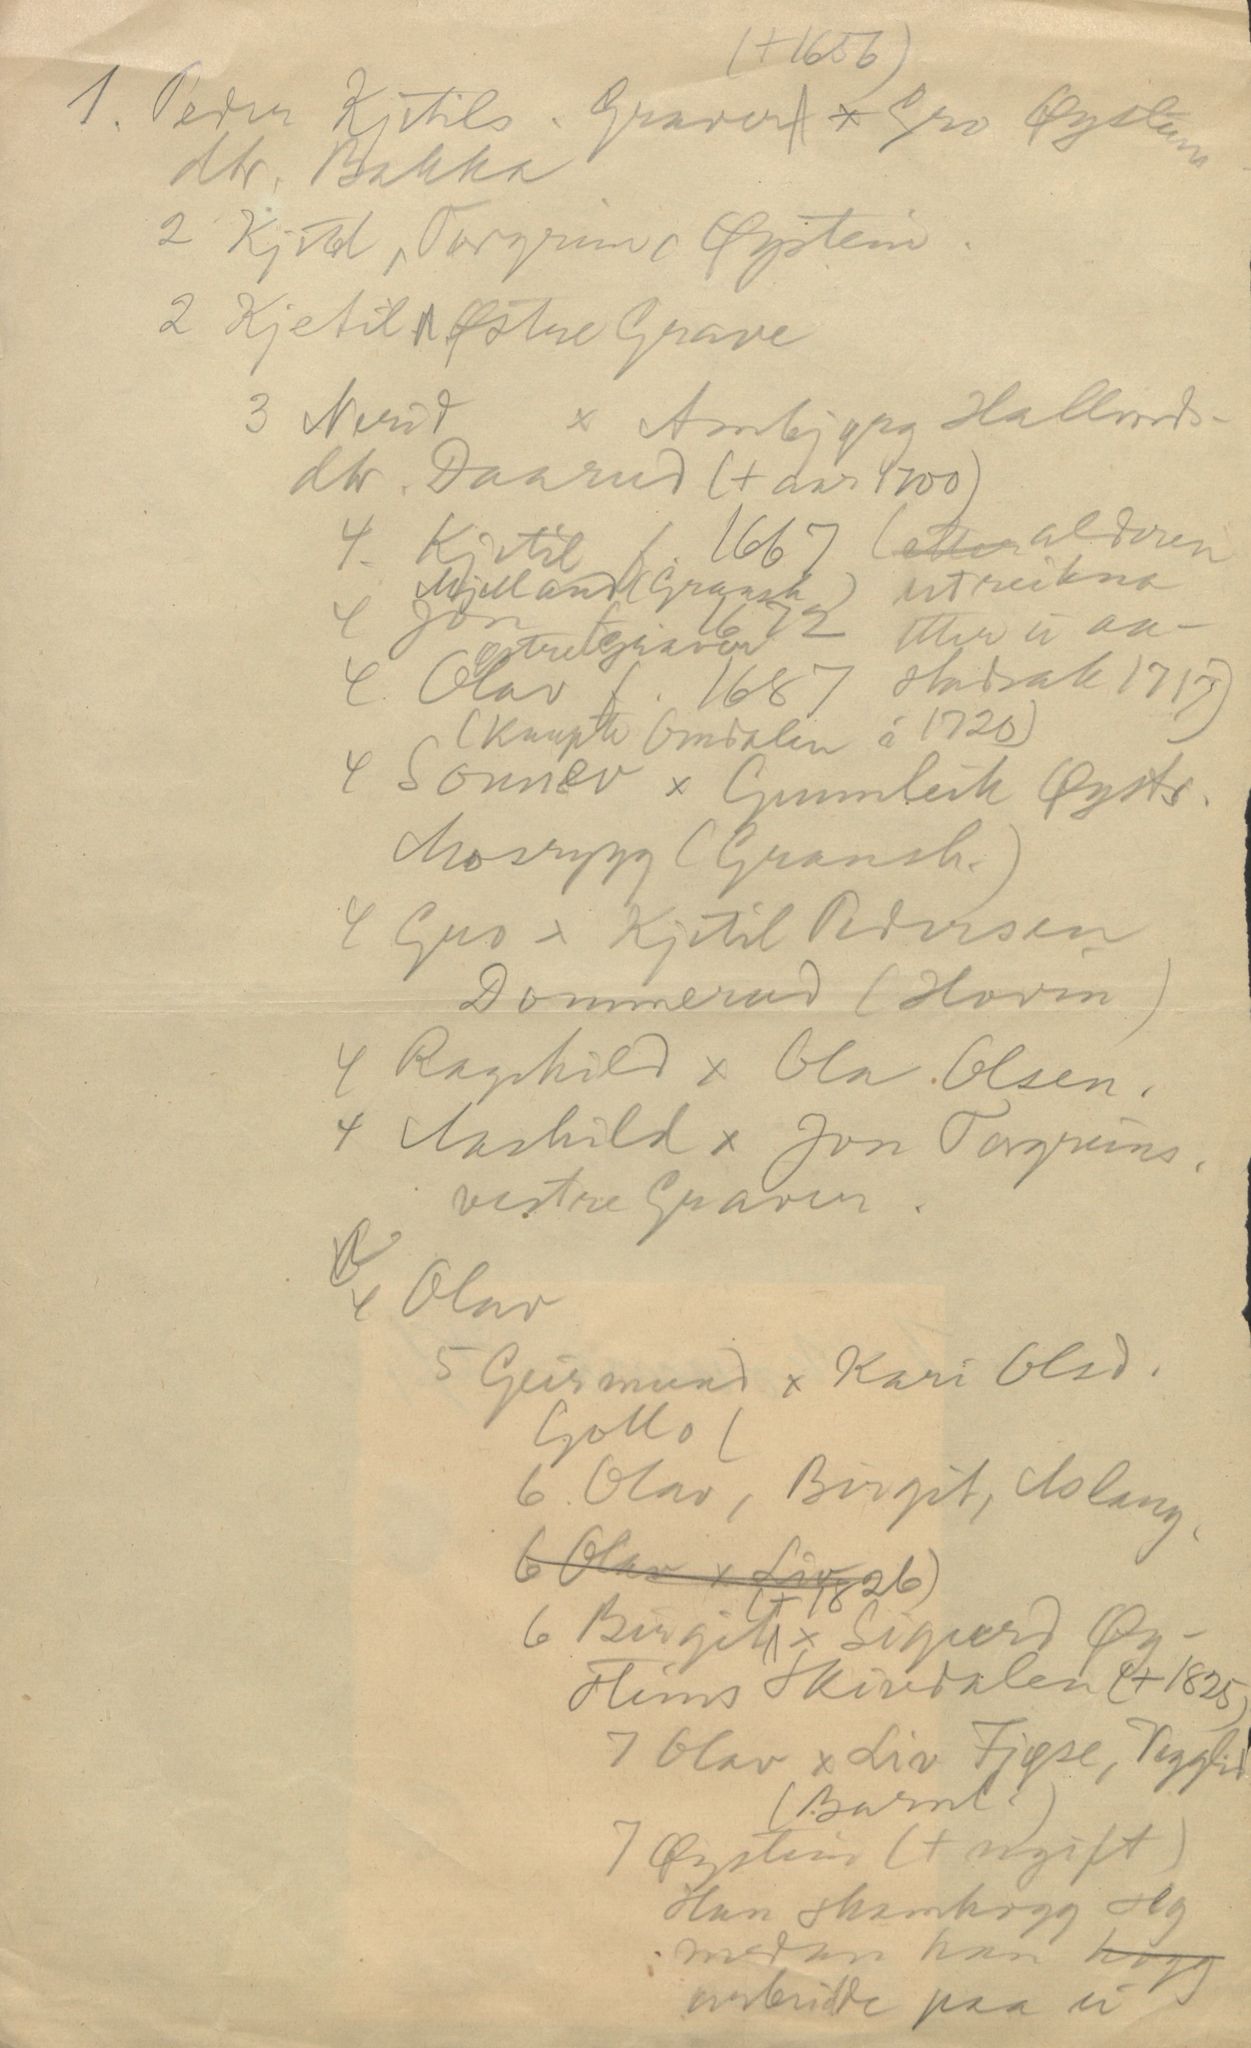 (+1656)
1. Peder Kjetils. Graver x Gro Øysteins
dtr. Bakka
2 Kjetil, Torgrim, Øystein.
2 Kjetil Østre Grave
3 Nerid x Ambjørg Hallvords-
dtr. Daarud (+ aar 1700)
4. Kjetil f. 1667 (etter alderen
Mjelland (Gransh.) utreikna
4 Jon f. 1672 etter ei aa-
østre Graver
4. Olav f. 1687 stadsak 1717)
(Kaupte Omdalen i 1720)
4 Sonnev x Gunnleik Øysts.
Mosrygg (Gransh.)
4 Gro x Kjetil Pedersen
Dommerud (Hovin)
4 Ragnhild x Ola Olsen.
4 Aashild x Jon Torgrims.
vestre Graver.
4 Olav
5 Geirmund x Kari Olsd.
Gollo (
6. Olav, Birgit, Aslaug.
6 Olav x Liv
(+ 1826)
6 Birgit x Sigurd Øy-
steins Skirdalen (+ 1825)
7 Olav x Liv Fjøse, Vegglid
(Barnl.)
7 Øystein (+ ugift)
Han skamhogg seg
medan han hogg
arbeidde paa ei